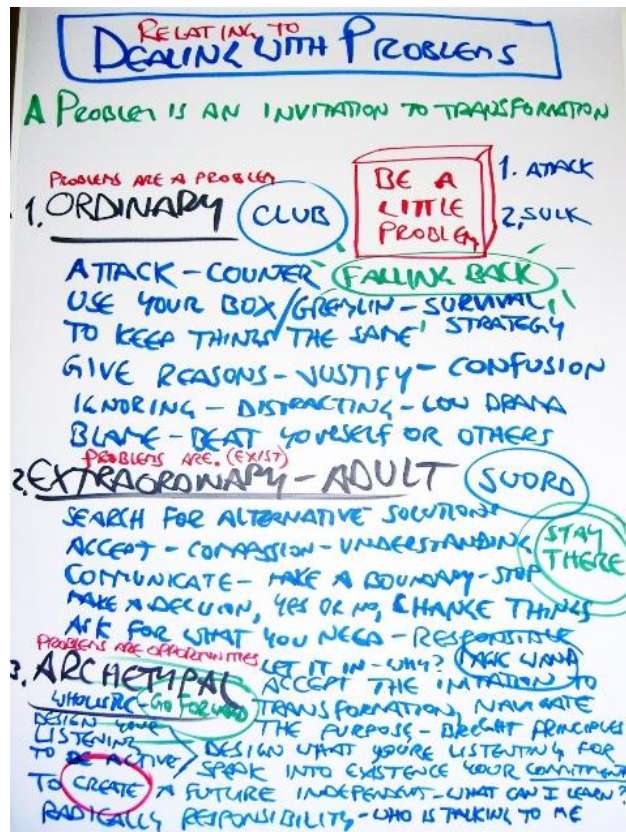 RELATING TO
DEALING WITH PROBLEMS
A PROBLEM IS AN INVITATION TO TRANSFORMATION
PROBLEMS ARE A PROBLEM
1. ORDINARY CLUB
BE A LITTLE PROBLEM
1. ATTACK
2. SULK
ATTACK - COUNTER FALLING BACK
USE YOUR BOX/GREMLIN - SURVIVAL
TO KEEP THINGS THE SAME STRATEGY
GIVE REASONS - JUSTIFY - CONFUSION
IGNORING - DISTRACTING - LOW DRAMA
BLAME - BEAT YOURSELF OR OTHERS
PROBLEMS ARE. (EXIST)
2. EXTRAORDINARY - ADULT SWORD
SEARCH FOR ALTERNATIVE SOLUTIONS
ACCEPT - COMPASSION - UNDERSTANDING STAY THERE
COMMUNICATE - MAKE A BOUNDARY - STOP
MAKE A DECISION, YES OR NO, CHANGE THINGS
ASK FOR WHAT YOU NEED - RESPONSIBLE
PROBLEMS ARE OPPORTUNITIES
3. ARCHETYPAL LET IT IN - WHY? WAND
WHOLISTIC - GO FORWARD
ACCEPT THE INITATION TO
TRANSFORMATION, NAVIGATE
THE PURPOSE - BRIGHT PRINCIPLES
DESIGN YOUR LISTENING
TO BE ACTIVE / DESIGN WHAT YOU'RE LISTENTING FOR
SPEAK INTO EXISTENCE YOUR COMMITMENT
TO CREATE A FUTURE INDEPENDANT - WHAT CAN I LEARN?
RADICALLY RESPONSIBILITY - WHO IS TALKING TO ME